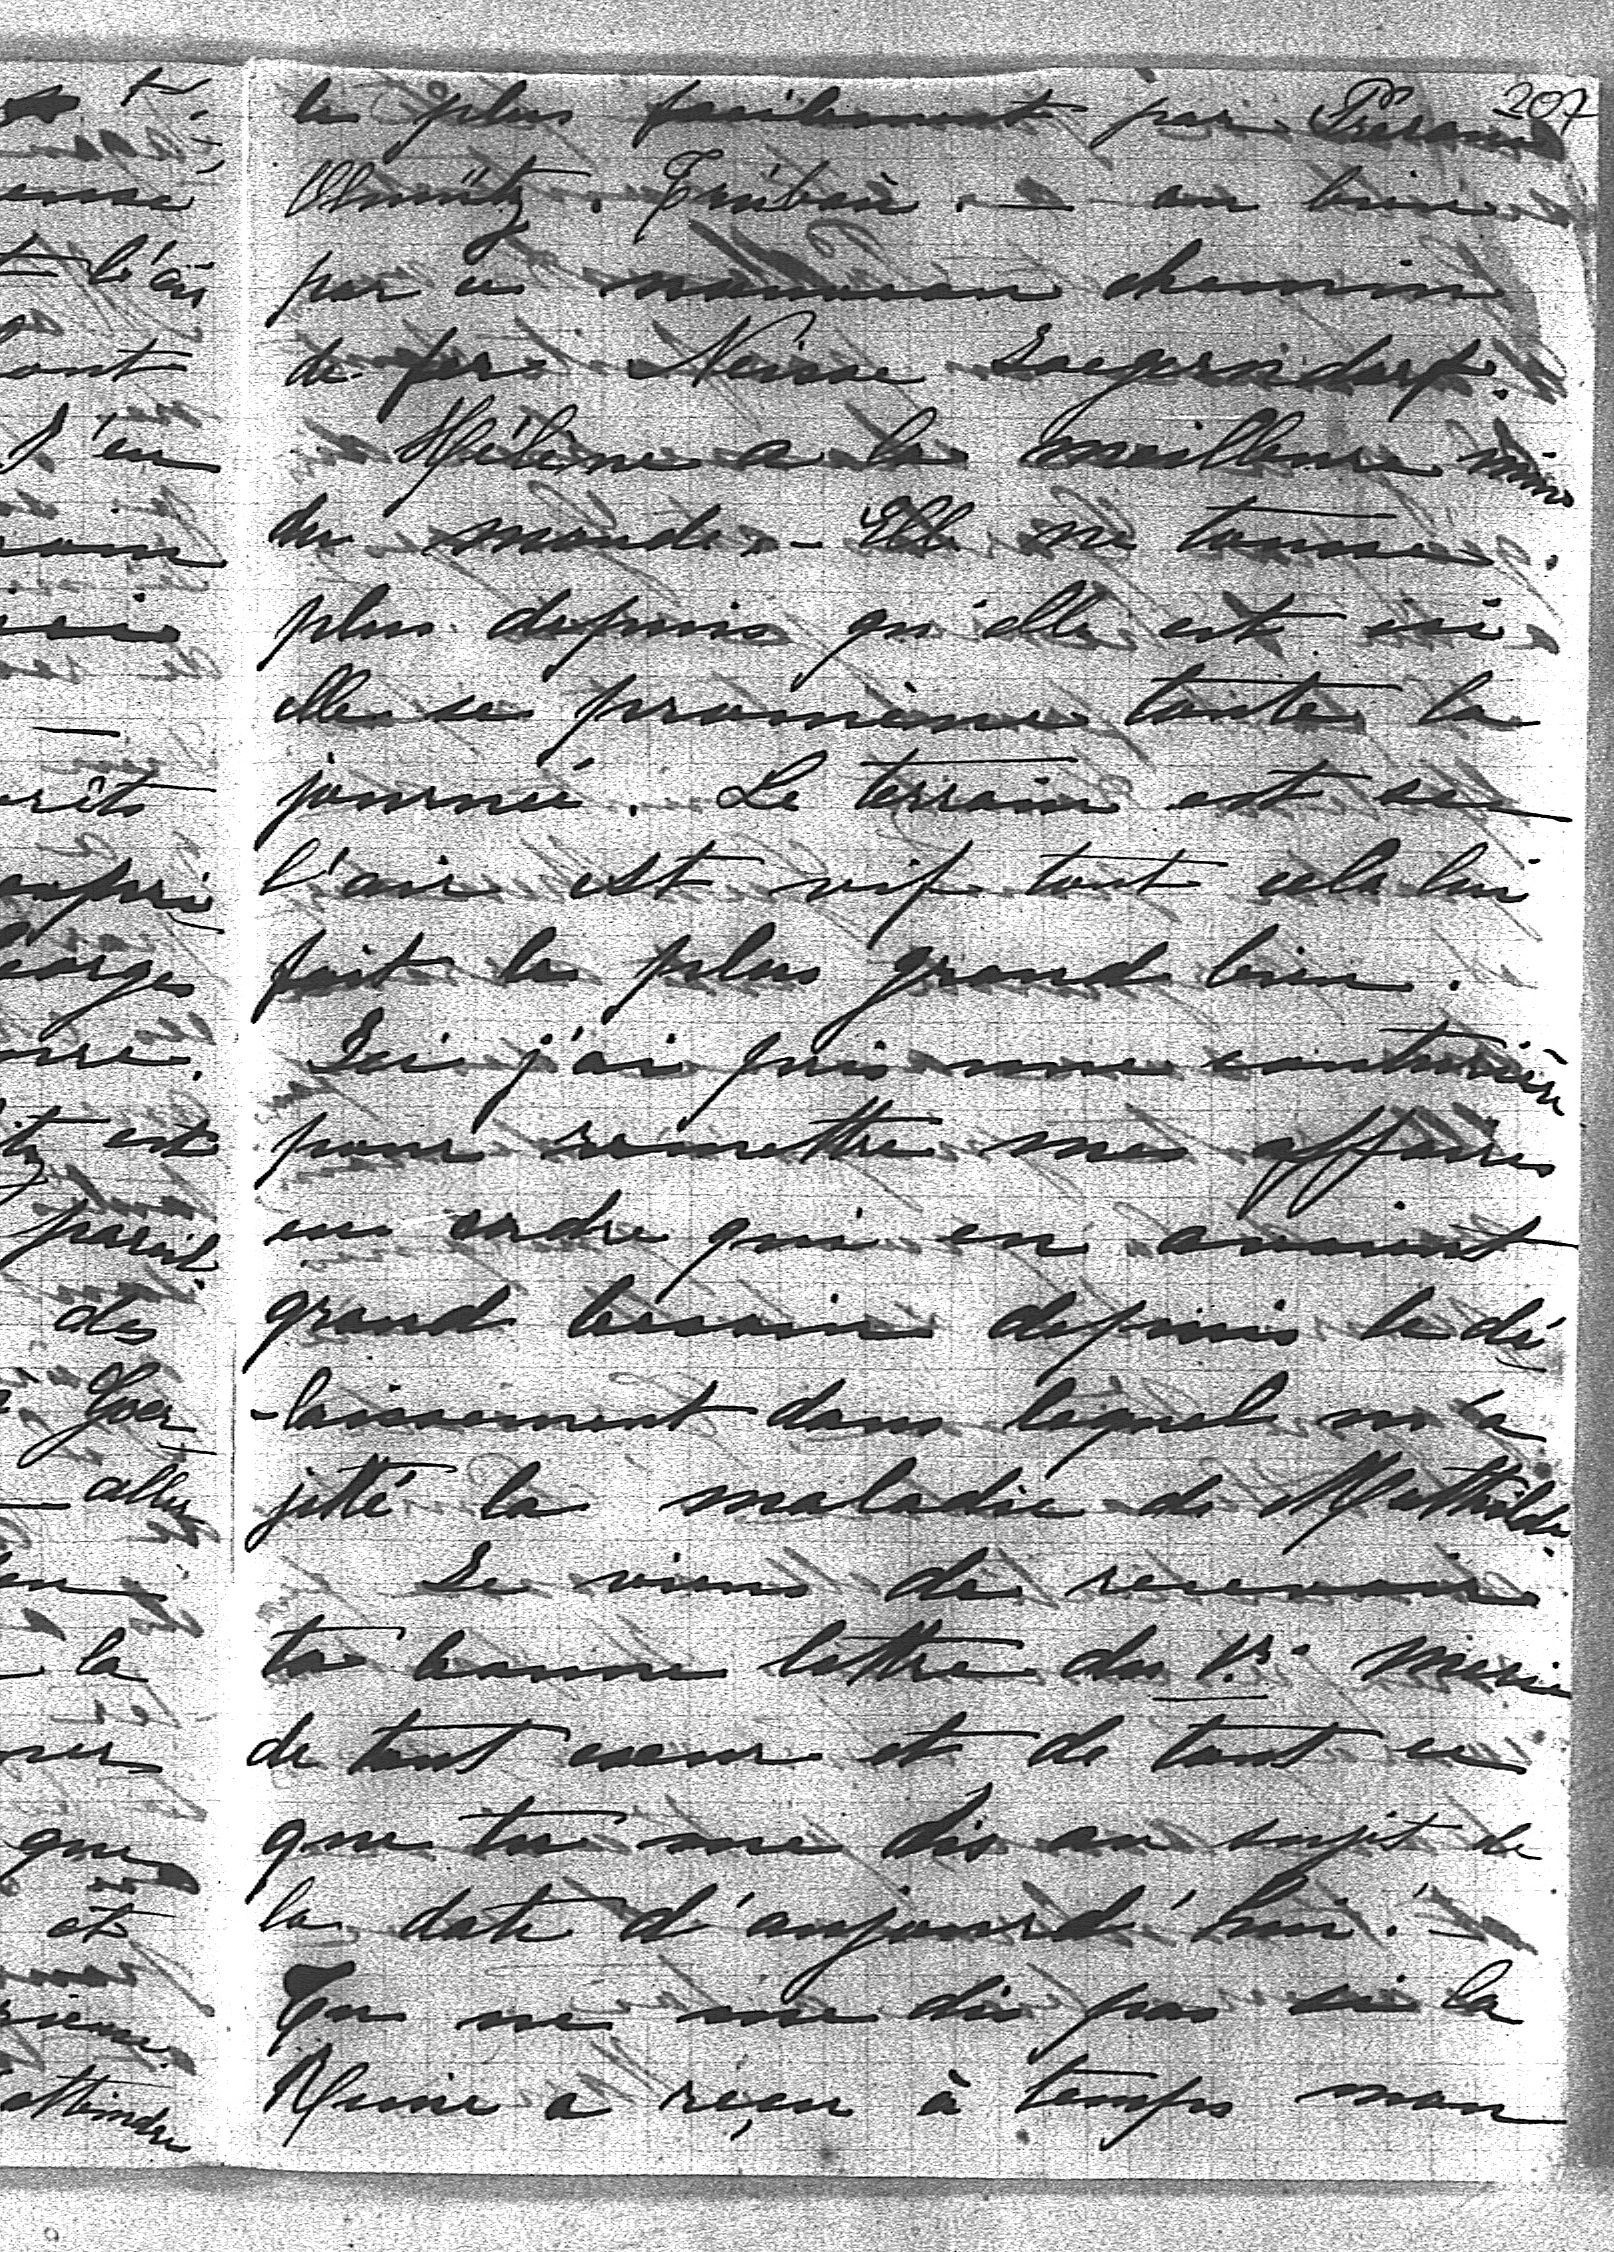 207
le plus facilement par Prerau
Olmütz. Trübau. — ou bien
par ce nouveau chemin
de fer Neisse Jaegerndorf.
Hélène a la meilleure mine
du monde. — Elle ne tousse
plus depuis qu'elle est ici
elle se promène toute la
journée. Le terrain est sec
l'air est vif tout cela lui
fait le plus grand bien.
Ici j'ai pris une couturière
pour remettre mes affaires
en ordre qui en avaient
grand besoin depuis le dé
-laissement dans lequel m'a
jetté la maladie de Mathilde.
Je viens de recevoir
ta bonne lettre du 1r. Merci
de tout coeur et de tout ce
que tu me dis au sujet de
la date d'aujourd'hui. —
Tu ne me dis pas si la
Reine a reçu à temps mon